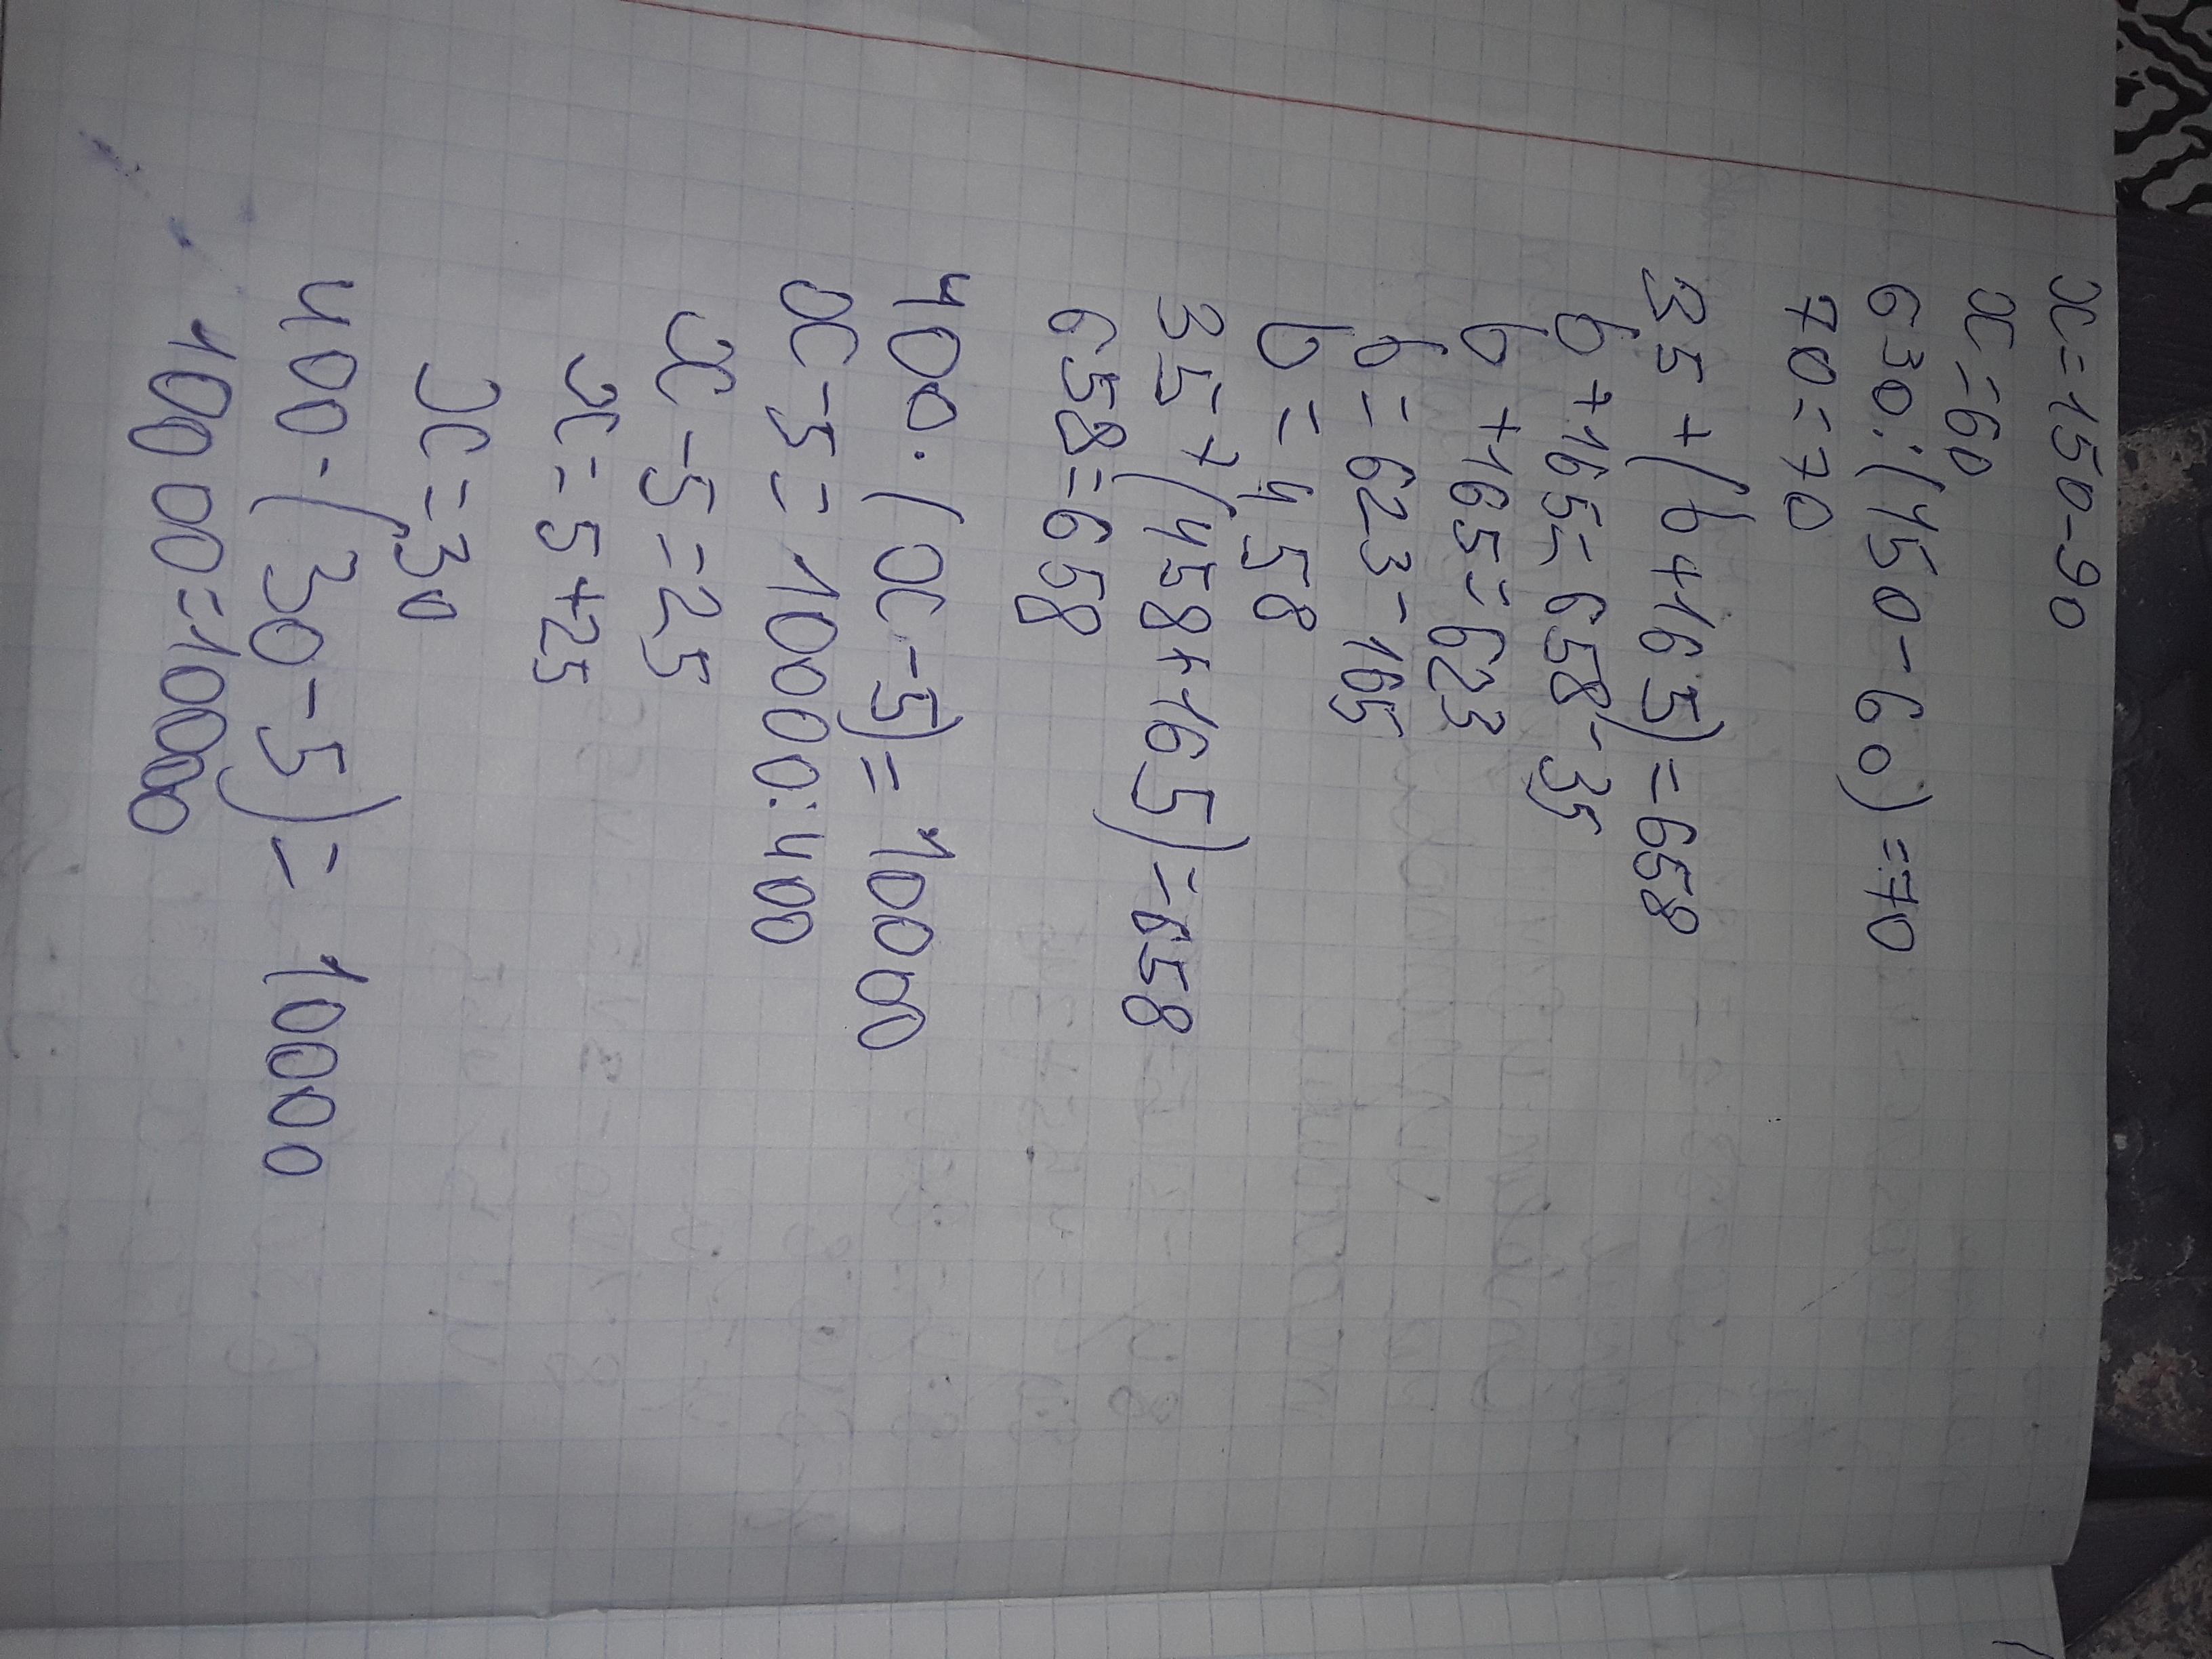 x=150-90
x=60
630:(150-60)=70
70=70
35+(b+165)=658
b+165=658-35
b+165=623
b=623-165
b=458
35+(458+165)=658
658=658
400·(x-5)=10000
x-5=10000:400
x-5=25
x=5+25
x=30
400·(30-5)=10000
10000=10000